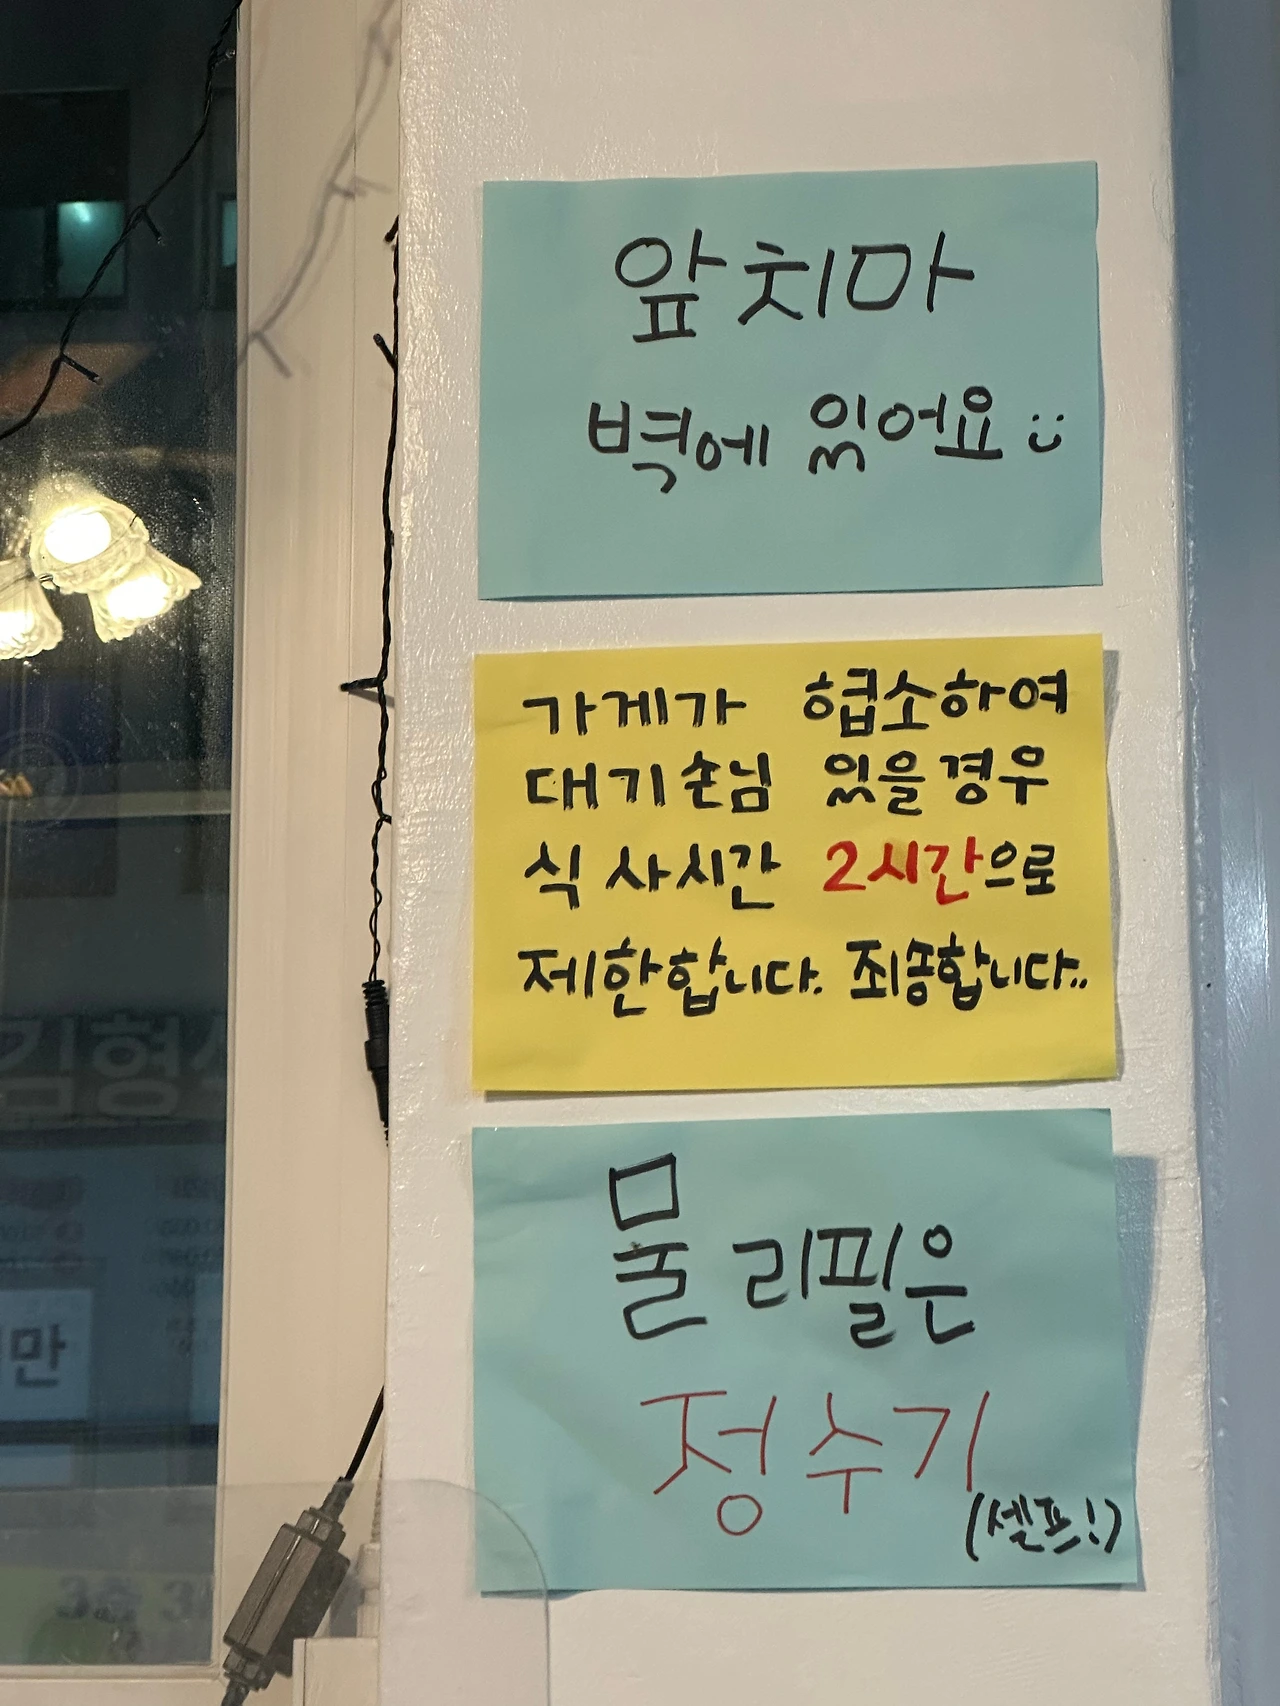 앞치마
벽에 있어요 :)
가게가 협소하여
대기손님 있을경우
식사시간 2시간으로
제한합니다. 죄송합니다..
물 리필은
정수기
(셀프!)
김형
만
3층